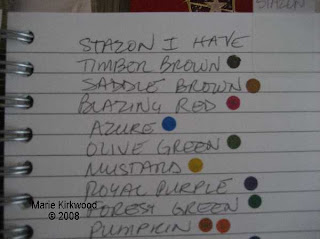 STAZON
STAZON I HAVE
TIMBER BROWN
SADDLE BROWN
BLAZING RED
AZURE
OLIVE GREEN
MUSTARD
ROYAL PURPLE
FOREST GREEN
PUMPKIN
Marie Kirkwood
© 2008